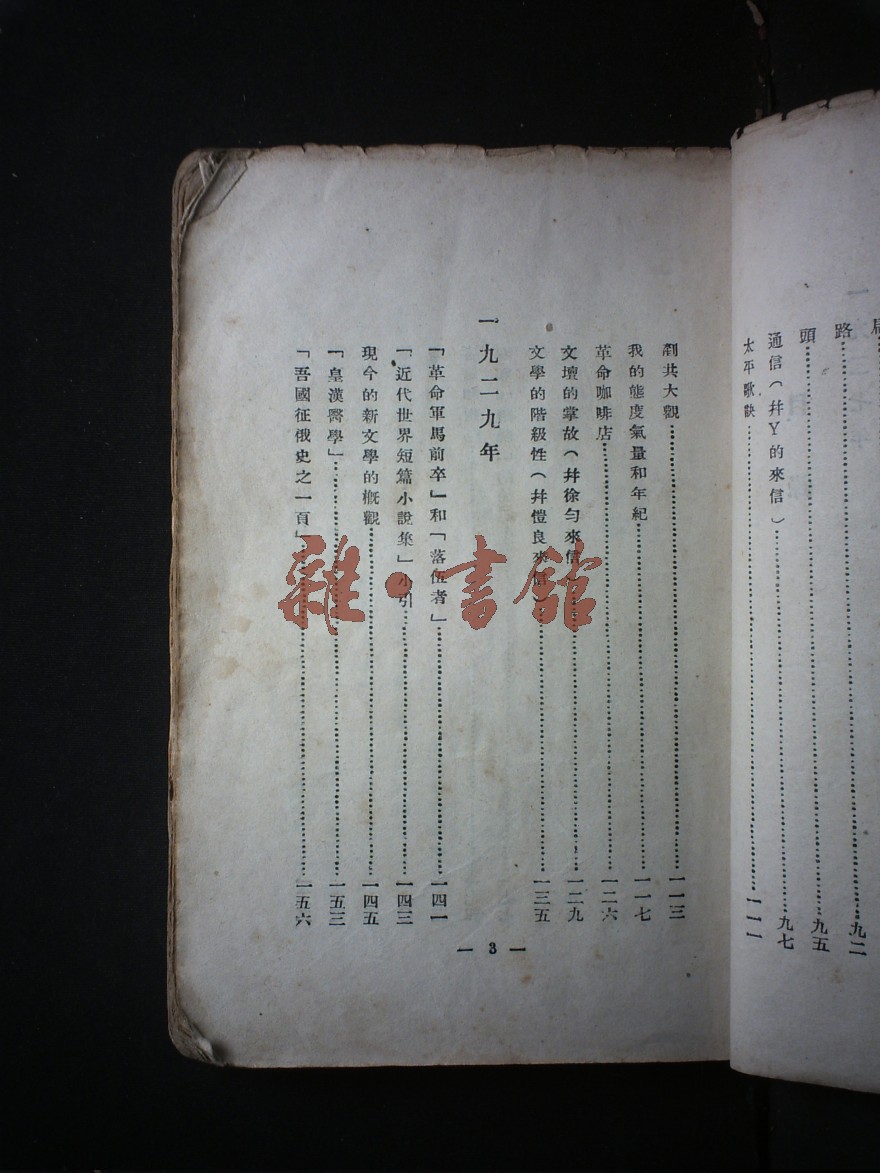 路……九二
頭……九五
通信(幷Y的來信)……九七
太平歌訣……一一一
剷共大觀……一一三
我的態度氣量和年紀……一一七
革命咖啡店……一二六
文壇的掌故(幷徐勻來信)……一二九
文學的階級性(幷愷良來信)……一三五
一九二九年
「革命軍馬前卒」和「落伍者」……一四一
「近代世界短篇小說集」小引……一四三
現今的新文學的概觀……一四五
「皇漢醫學」……一五三
「吾國征俄史之一頁」……一五六
— 3 —
雜·書館